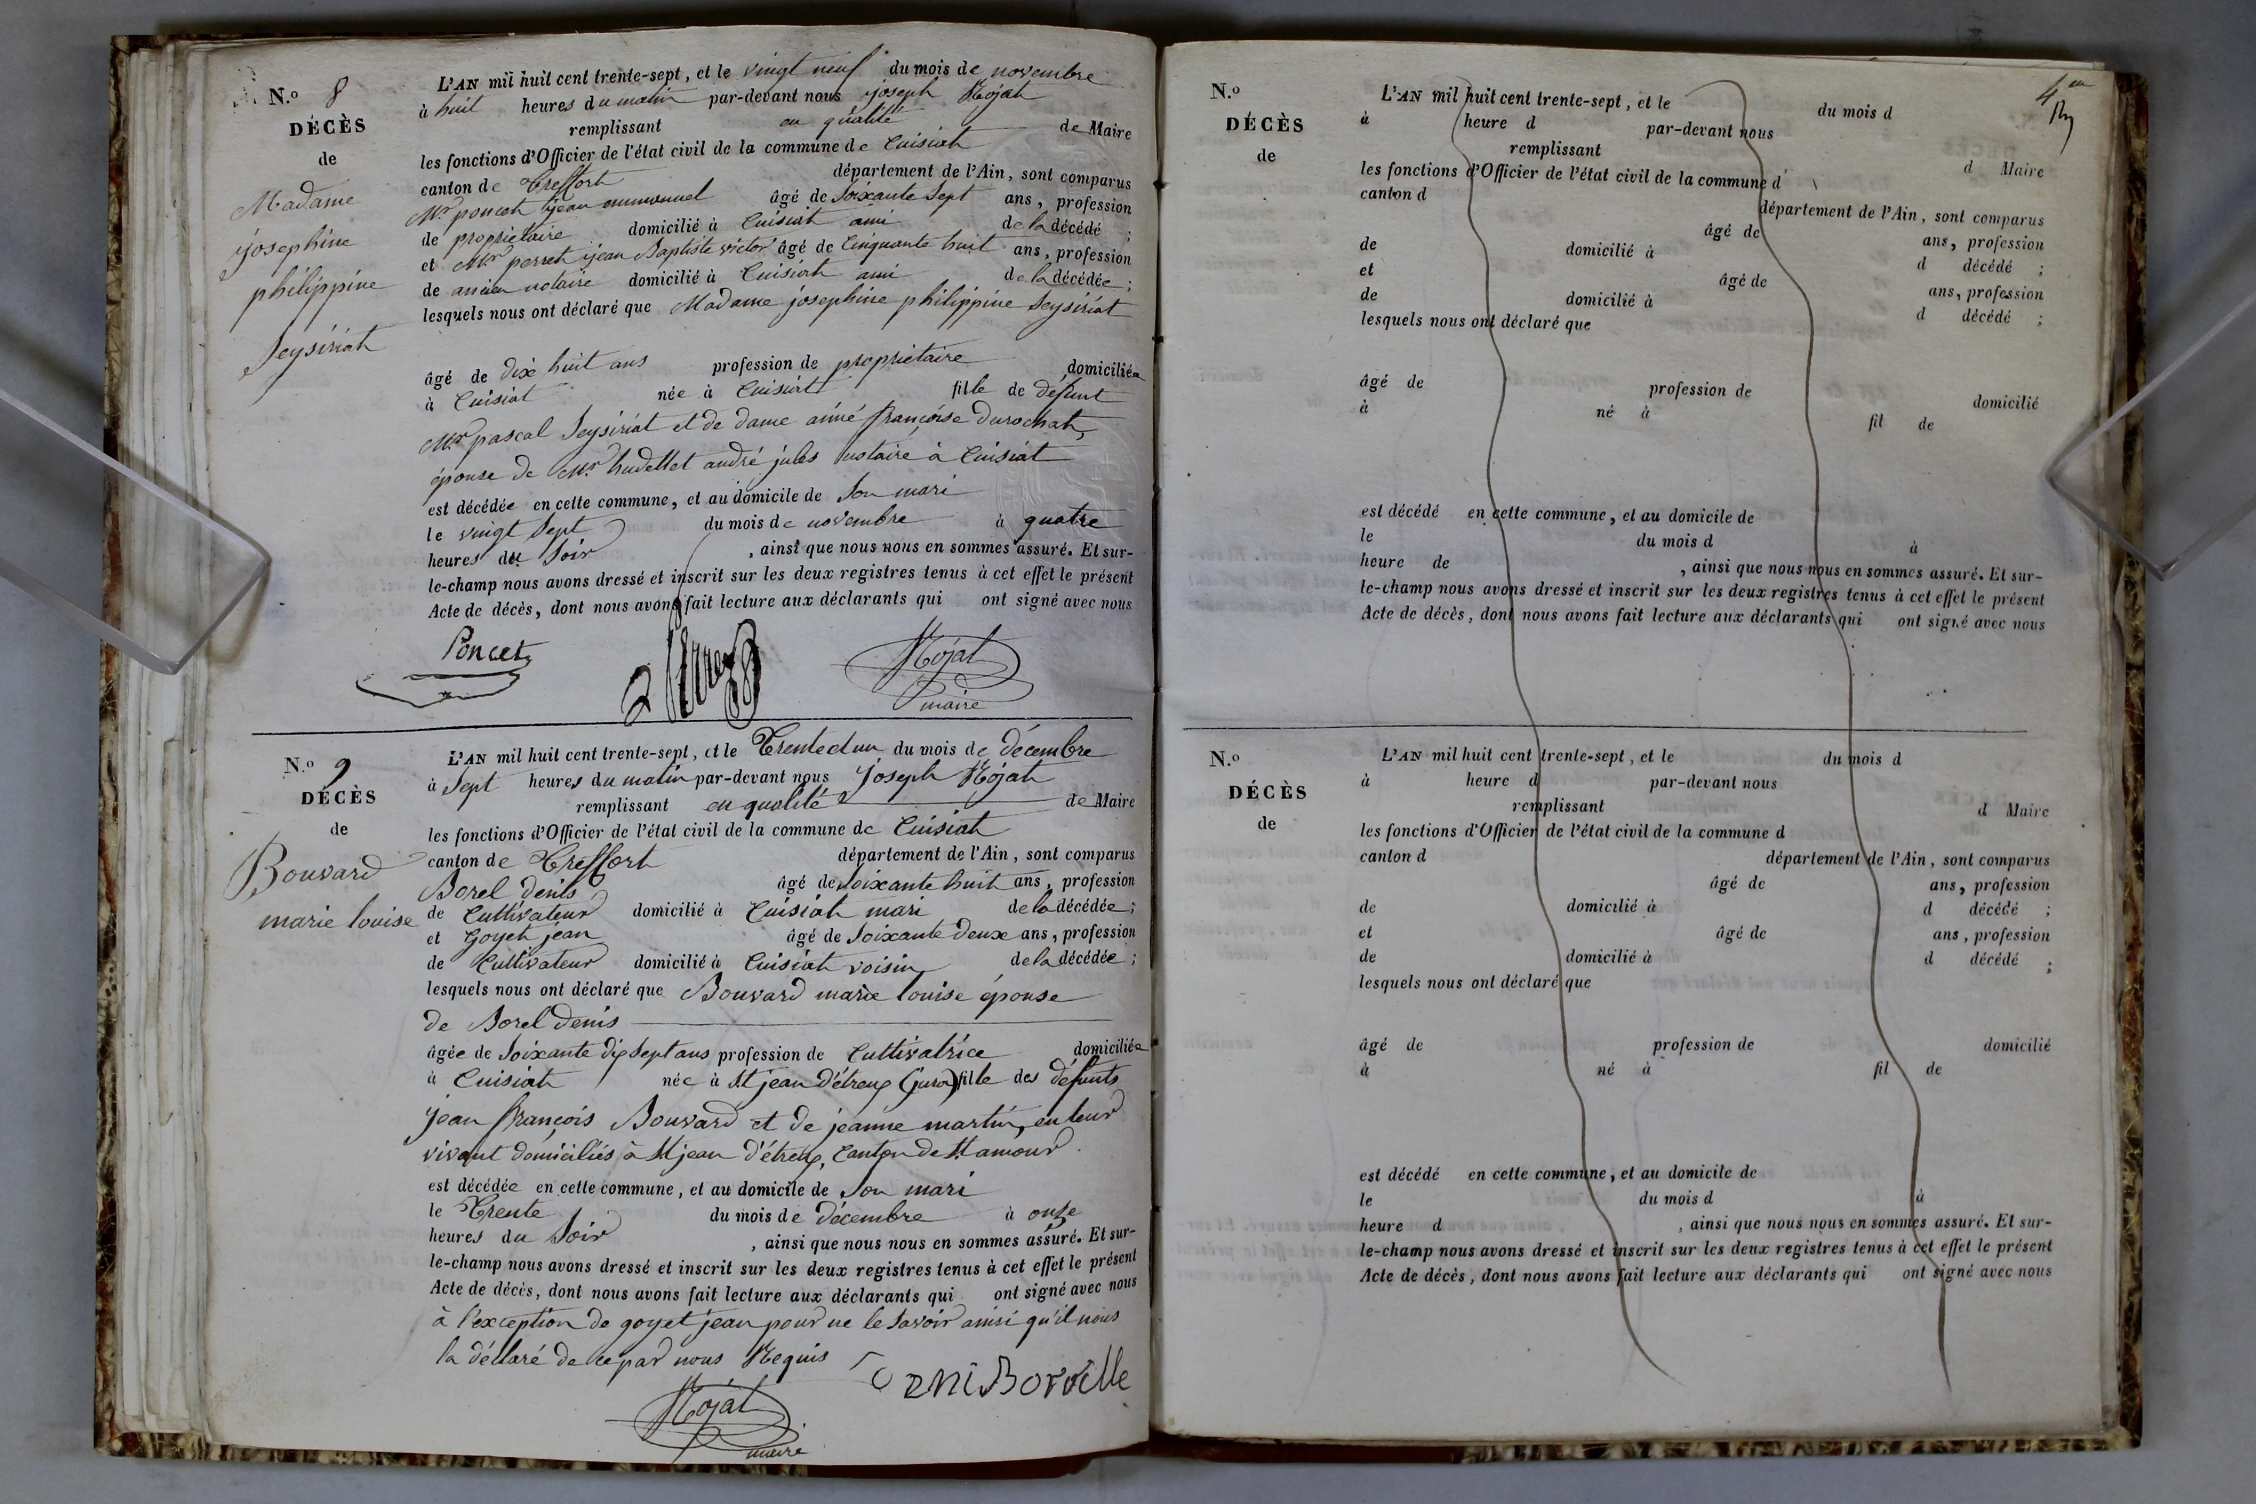 N.o 8
DÉCÈS
de
Madame
josephine
philippine
Seysiriat
L'AN mil huit cent trente-sept, et le vingt neuf du mois de novembre
à huit heures du matin par-devant nous joseph
remplissant en qualité de Maire
les fonctions d'Officier de l'état civil de la commune de Cuisiat
canton de Treffort département de l'Ain, sont comparus
Mr poncet jean emmanuel âgé de Soixante Sept ans, profession
de propriétaire domicilié à Cuisiat ami de la décédé ;
et Mr perret jean Baptiste victor âgé de Cinquante huit ans, profession
de ancien notaire domicilié à Cuisiat ami de la décédée ;
lesquels nous ont déclaré que Madame josephine philippine Seysiriat
âgé de dix huit ans profession de propriétaire domiciliée
à Cuisiat née à Cuisiat fille de défunt
Mr pascal Seysiriat et de dame aimé françoise Durochat,
épouse de Mr hudellet andré jules notaire à Cuisiat
est décédée en cette commune, et au domicile de Son mari
le vingt Sept du mois de novembre à quatre
heures du Soir , ainsi que nous nous en sommes assuré. Et sur-
le-champ nous avons dressé et inscrit sur les deux registres tenus à cet effet le présent
Acte de décès, dont nous avons fait lecture aux déclarants qui ont signé avec nous
Poncet
maire
N.o 9
DÉCÈS
de
Bouvard
marie louise
L'AN mil huit cent trente-sept, et le Trente et un du mois de décembre
à Sept heures du matin par-devant nous Joseph
remplissant en qualité de Maire
les fonctions d'Officier de l'état civil de la commune de Cuisiat
canton de Treffort département de l'Ain, sont comparus
Borel denis âgé de Soixante huit ans, profession
de Cultivateur domicilié à Cuisiat mari de la décédée ;
et Goyet jean âgé de Soixante Deux ans, profession
de Cultivateur domicilié à Cuisiat voisin de la décédée ;
lesquels nous ont déclaré que Bouvard marie louise épouse
de Borel Denis
âgée de Soixante dix Sept ans profession de Cultivatrice domiciliée
à Cuisiat née à St jean d'étreux (jura) fille des défunts
jean françois Bouvard et de jeanne martin, en leur
vivant domiciliés à St jean d'étreux, Canton de St amour.
est décédée en cette commune, et au domicile de Son mari
le Trente du mois de décembre à onze
heures du Soir , ainsi que nous nous en sommes assuré. Et sur-
le-champ nous avons dressé et inscrit sur les deux registres tenus à cet effet le présent
Acte de décès, dont nous avons fait lecture aux déclarants qui ont signé avec nous
à l'exception de goyet jean pour ne le Savoir ainsi qu'il nous
la déclaré de ce par nous Requis
maire
N.o
DÉCÈS
de
L'AN mil huit cent trente-sept, et le du mois d
à heure d par-devant nous
remplissant d Maire
les fonctions d'Officier de l'état civil de la commune d
canton d département de l'Ain, sont comparus
âgé de ans, profession
de domicilié à d décédé ;
et âgé de ans, profession
de domicilié à d décédé ;
lesquels nous ont déclaré que
âgé de profession de domicilié
à né à fil de
est décédé en cette commune, et au domicile de
le du mois d à
heure de , ainsi que nous nous en sommes assuré. Et sur-
le-champ nous avons dressé et inscrit sur les deux registres tenus à cet effet le présent
Acte de décès, dont nous avons fait lecture aux déclarants qui ont signé avec nous
N.o
DÉCÈS
de
L'AN mil huit cent trente-sept, et le du mois d
à heure d par-devant nous
remplissant d Maire
les fonctions d'Officier de l'état civil de la commune d
canton d département de l'Ain, sont comparus
âgé de ans, profession
de domicilié à d décédé ;
et âgé de ans, profession
de domicilié à d décédé ;
lesquels nous ont déclaré que
âgé de profession de domicilié
à né à fil de
est décédé en cette commune, et au domicile de
le du mois d à
heure d , ainsi que nous nous en sommes assuré. Et sur-
le-champ nous avons dressé et inscrit sur les deux registres tenus à cet effet le présent
Acte de décès, dont nous avons fait lecture aux déclarants qui ont signé avec nous